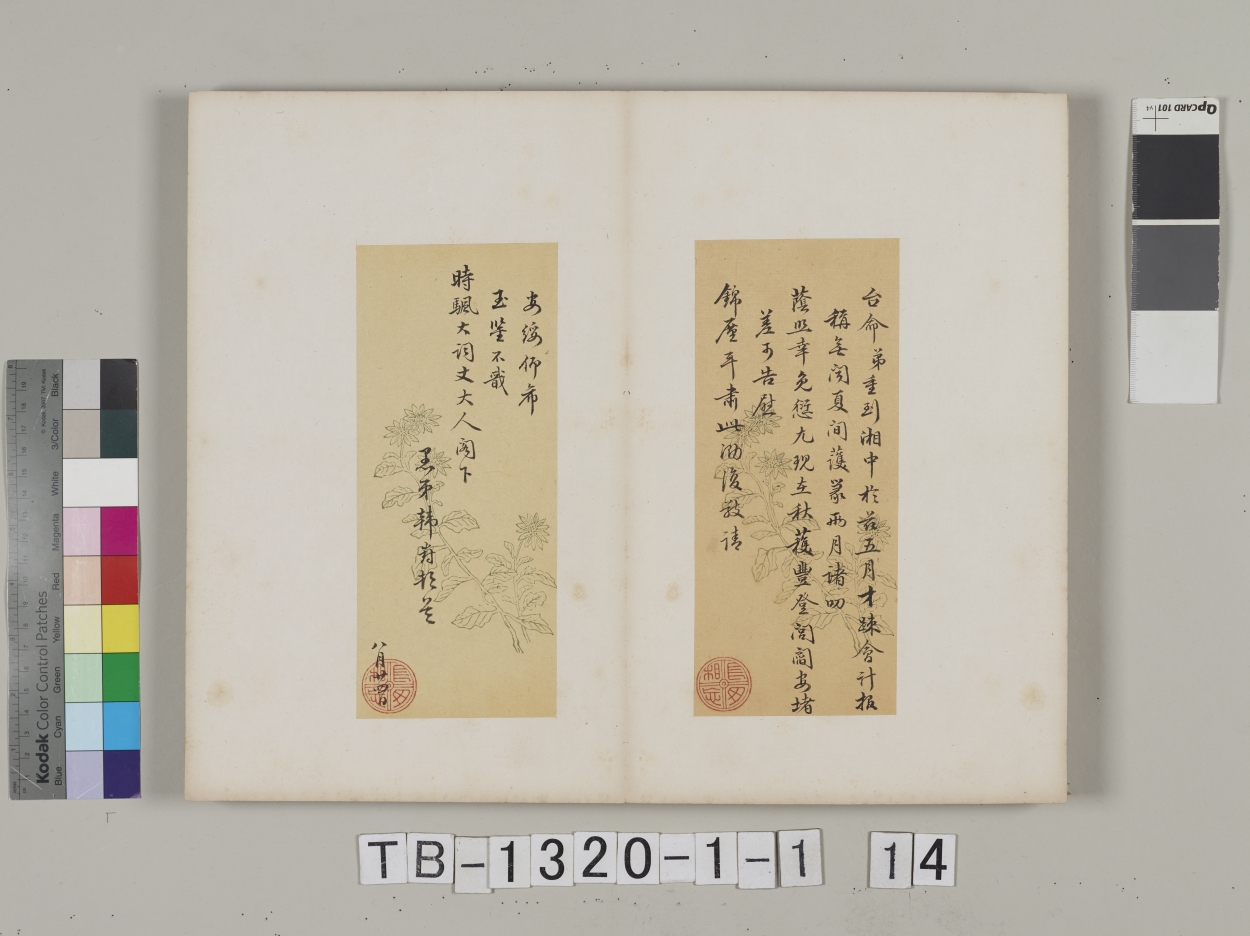 台命弟重到湘中於茲五月才疎會計報
稱無闵夏间護篆兩月諸叨
蔭照幸免愆尤現在秋穫豐登閭閻安堵
差可告慰
錦廑耳肅此泐復敬請
安綏仰希
玉鑒不戩
時颿大词丈大人阁下
愚弟韩
八月廿四日
Kodak Color Control Patches
Blue
Cyan
Green
Yellow
Red
Magenta
White
3/Color
Black
QPCARD 101 v4
TB-1320-1-1 14